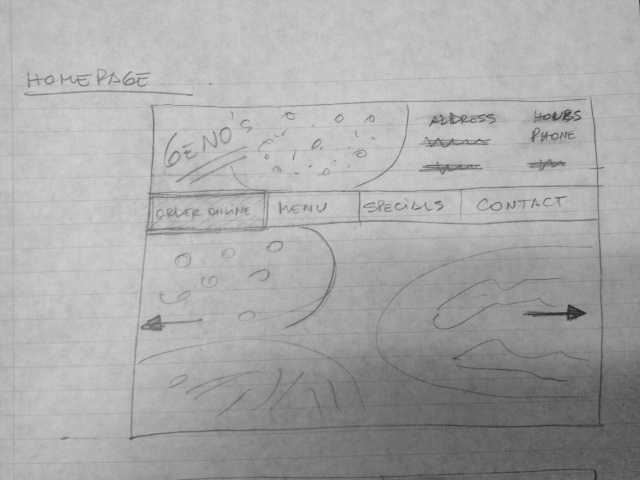 HOMEPAGE
GENO'S
ADDRESS
HOURS
PHONE
ORDER ONLINE
MENU
SPECIALS
CONTACT